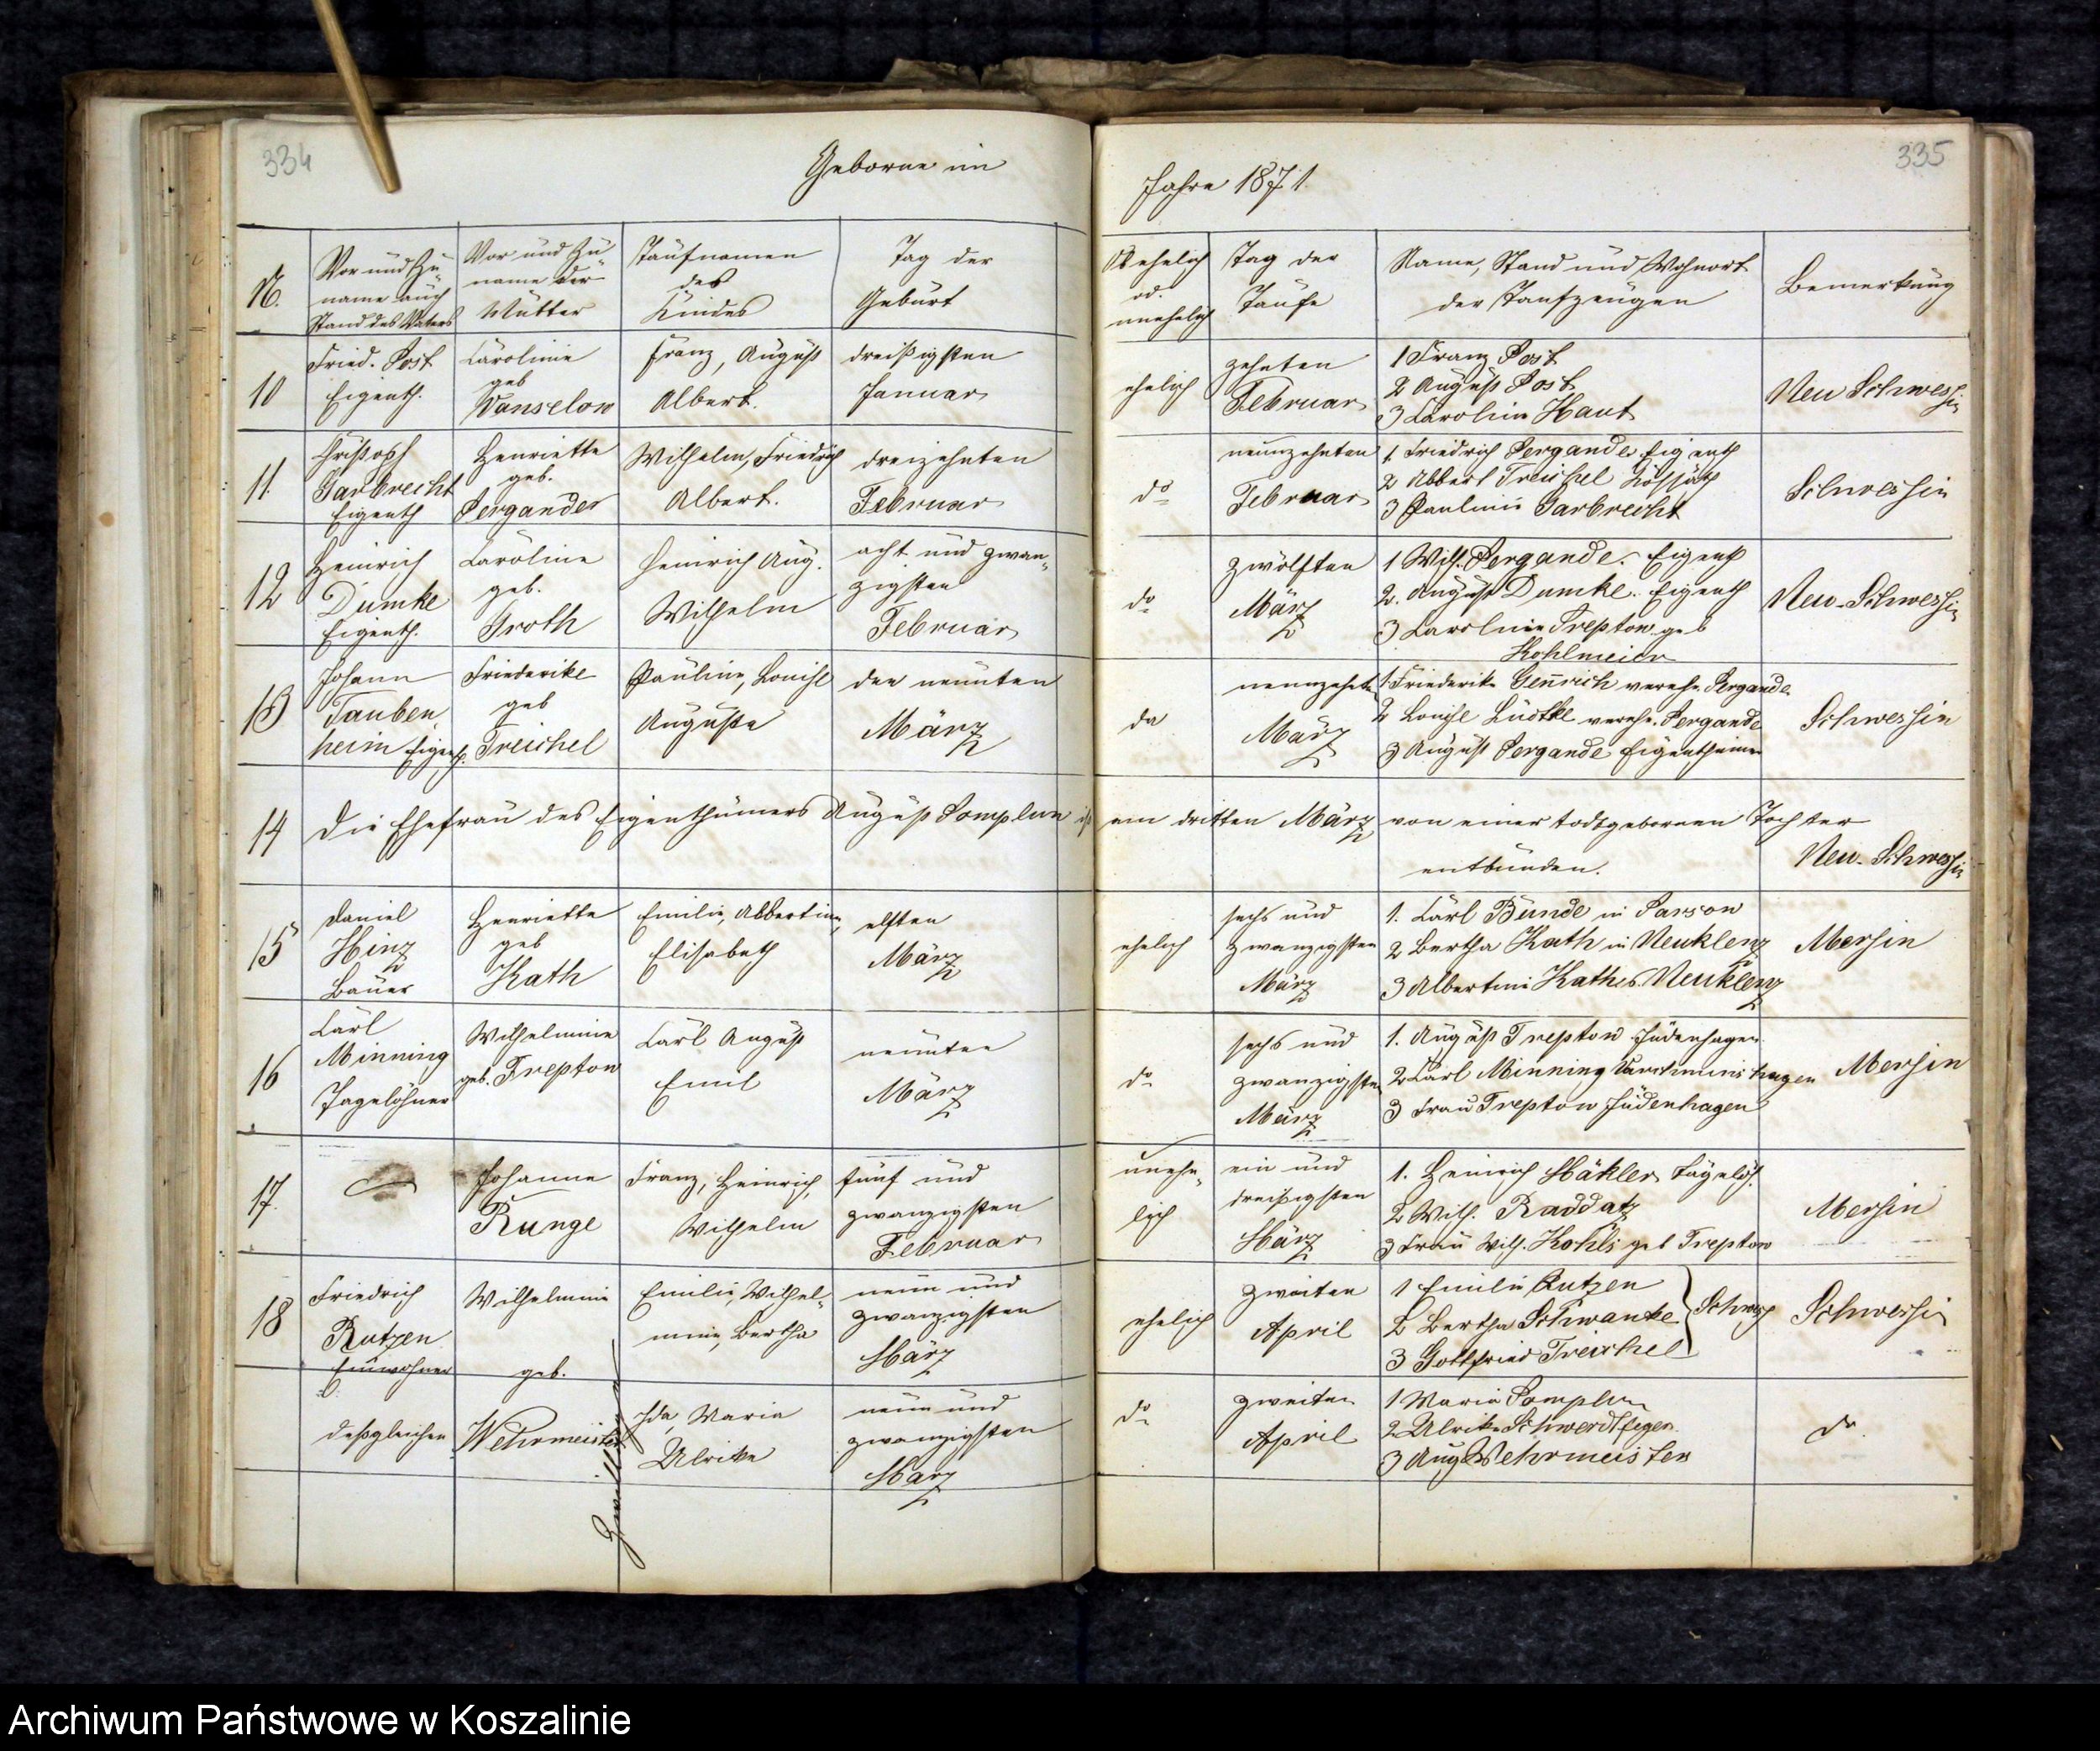 334
Geborne im
N.
Vor und Zu-
name auch
Stand des Vaters
Vor und Zu-
name der
Mutter
Taufnamen
des
Kindes
Tag der
Geburt
10
Fried. Post
Eigenth.
Caroline
geb
Wanselow
Franz, August
Albert.
dreißigsten
Januar
11.
Christoph
Garbrecht
Eigenth
Henriette
geb.
Pergande
Wilhelm, Friedrich
Albert.
dreizehnten
Februar
12
Heinrich
Dumke
Eigenth.
Caroline
geb.
Groth
Heinrich Aug.
Wilhelm
acht und zwan-
zigsten
Februar
13
Johann
Tauben-
heim Eigenth.
Friederike
geb
Treichel
Pauline, Louise
Auguste
den neunten
März
14
Die Ehefrau des Eigenthümers August Pomplun ist
15
Daniel
Hinz
Bauer
Henriette
geb
Kath
Emilie, Albertine,
Elisabeth
elften
März
16
Carl
Minning
Tagelöhner
Wilhelmine
geb. Treptow
Carl August
Emil
neunten
März
17.
Johanne
Runge
Franz, Heinrich,
Wilhelm
fünf und
zwanzigsten
Februar
18
Friedrich
Rutzen
Einwohner
Wilhelmine
geb.
Emilie, Wilhel-
mine, Bertha
neun und
zwanzigsten
März
deßgleichen
Wehrmeister
Zwillinge
Ida, Maria
Ulrike
neun und
zwanzigsten
März
335
Jahre 1871.
Ob ehelich
od.
unehelich
Tag der
Taufe
Name, Stand und Wohnort
der Taufzeugen
Bemerkung
ehelich
zehnten
Februar
1 Franz Post
2 August Post
3 Caroline Haut
Neu Schwessin
do
neunzehnten
Februar
1 Friedrich Pergande Eigenth
2 Albert Treichel Kossäth
3 Pauline Garbrecht
Schwessin
do
zwölften
März
1 Wilh. Pergande. Eigenth
2. August Dumke. Eigenth
3 Caroline Treptow geb
Kohlmeier
Neu-Schwessin
do
neunzehnten
März
1 Friederike Genrich vereh. Pergande
2 Louise Lüdtke vereh. Pergande
3 August Pergande Eigenthümer
Schwessin
am dritten März von einer todtgebornen Tochter
entbunden.
Neu-Schwessin
ehelich
sechs und
zwanzigsten
März
1. Carl Bunde in Parsow
2 Bertha Kath in Neuklenz
3 Albertine Kath Neuklenz
Mersin
do
sechs und
zwanzigsten
März
1. August Treptow Jüdenhagen
2 Carl Minning Varchminshagen
3 Frau Treptow Jüdenhagen
Mersin
unehe-
lich
ein und
dreißigsten
März
1. Heinrich Häkler Tagelöh.
2 Wilh. Raddatz
3 Frau Wilh. Kohls geb Treptow
Mersin
ehelich
zweiten
April
1 Emilie Rutzen
2 Bertha Schwanke
3 Gottfried Treichel
Schwess
Schwessin
do
zweiten
April
1 Maria Pomplun
2 Ulrike Schwerdtfeger
3 Aug Wehrmeister
do
Archiwum Państwowe w Koszalinie